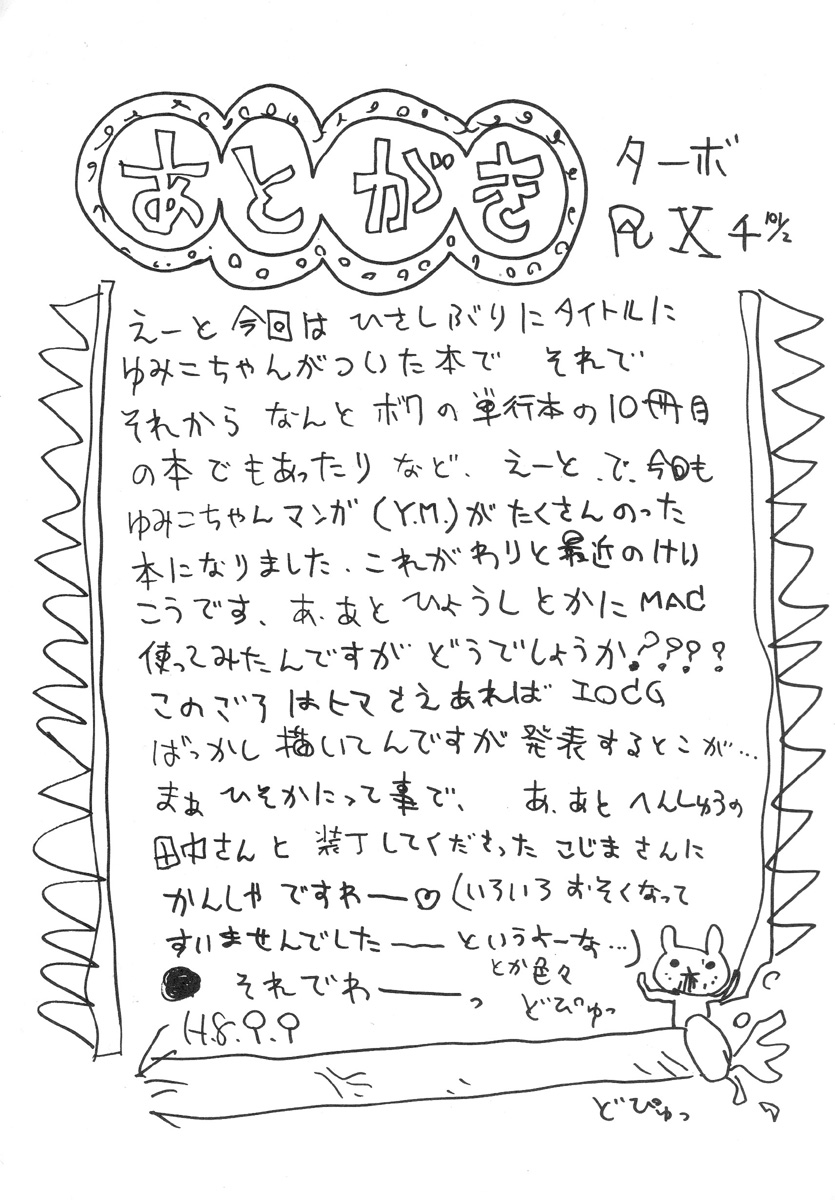 あとがき
ターボ
RX4 10½
えーと 今回は ひさしぶりに タイトルに
ゆみこちゃんがついた本で それで
それから なんと ボクの 単行本の10冊目
の本でもあったり など、えーと、で、今回も
ゆみこちゃんマンガ (Y.M.)が たくさんのった
本になりました、これがわりと最近のけい
こうです、あ、あと ひょうしとかに MAC
使ってみたんですが どうでしょうか????
このごろはヒマさえあれば エロCG
ばっかし 描いてんですが 発表するとこが…
まぁ ひそかにって事で、 あ、あと へんしゅうの
田中さんと 装丁してくださった こじまさんに
かんしゃですわー♡(いろいろ おそくなって
すいませんでしたー というよーな…)
それでわーっ
とか色々
どぴゅっ
H.8.9.9
どぴゅっ